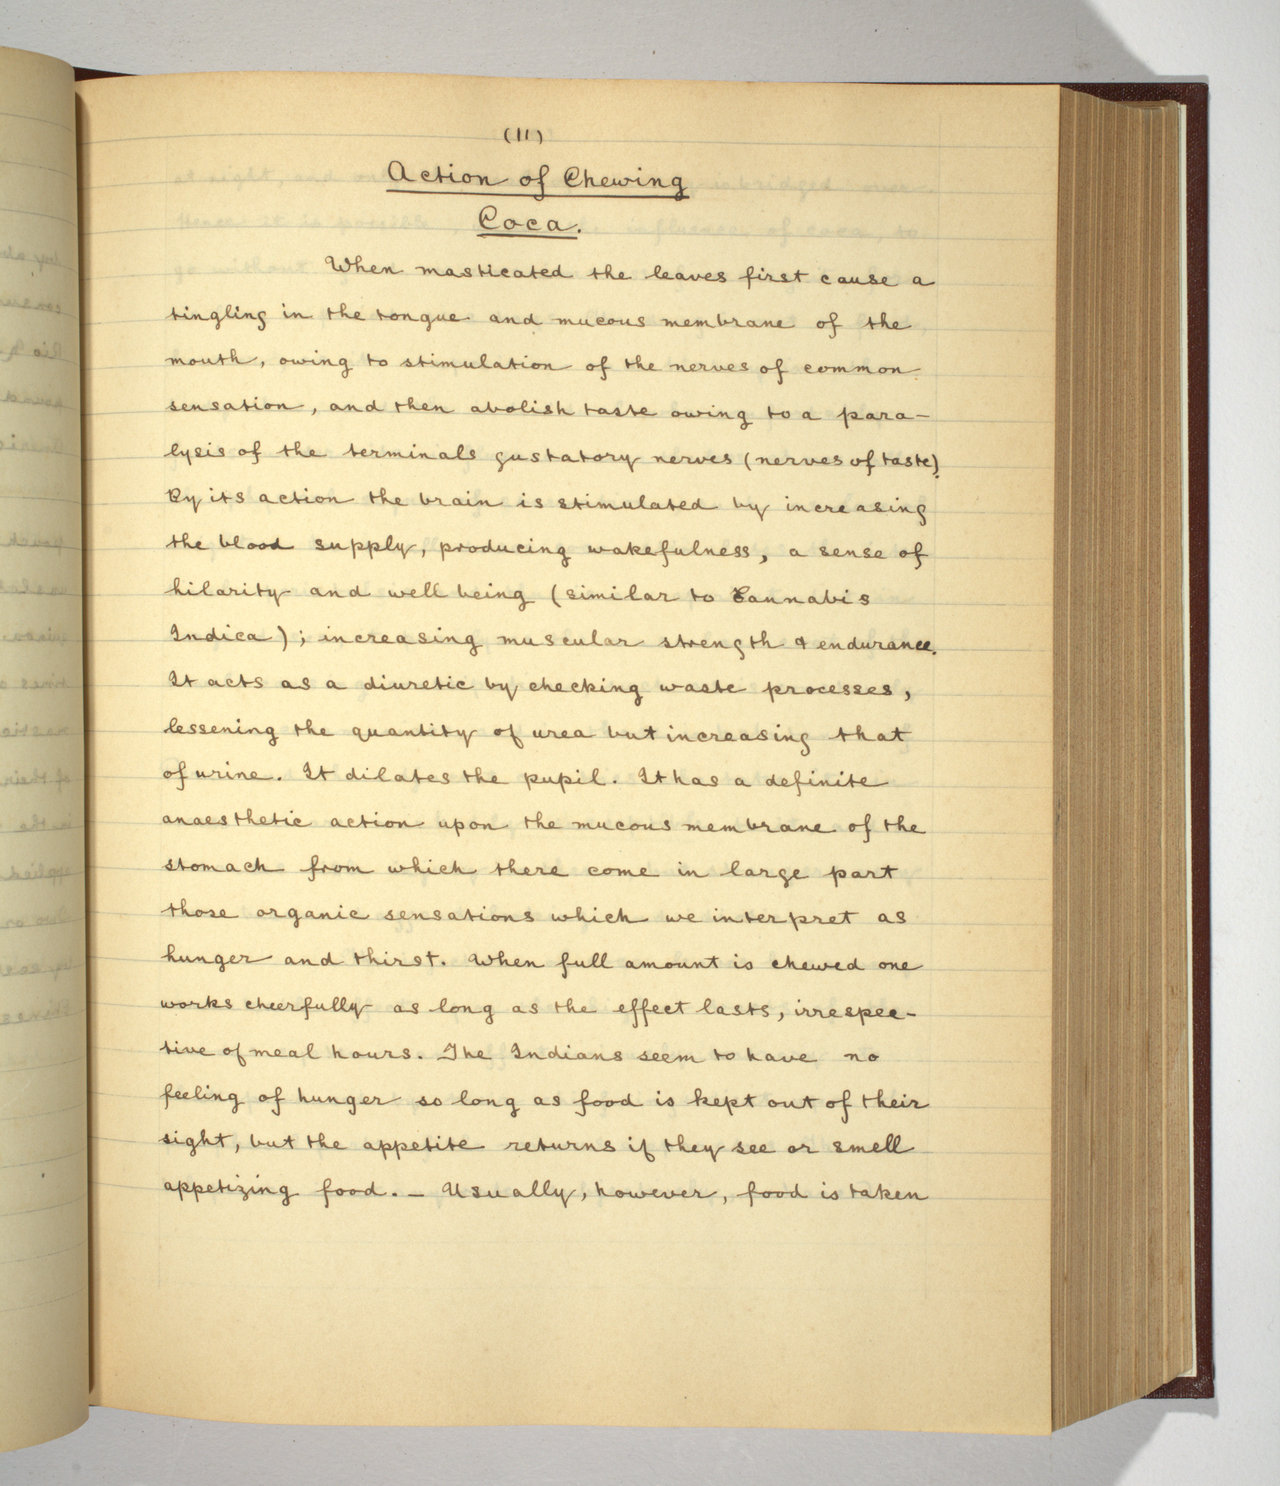 (11)
Action of Chewing
Coca.
When masticated the leaves first cause a
tingling in the tongue and mucous membrane of the
mouth, owing to stimulation of the nerves of common
sensation, and then abolish taste owing to a para-
lysis of the terminals gustatory nerves (nerves of taste).
By its action the brain is stimulated by increasing
the blood supply, producing wakefulness, a sense of
hilarity and well being (similar to Cannabis
Indica); increasing muscular strength & endurance.
It acts as a diuretic by checking waste processes,
lessening the quantity of urea but increasing that
of urine. It dilates the pupil. It has a definite
anaesthetic action upon the mucous membrane of the
stomach from which there come in large part
those organic sensations which we interpret as
hunger and thirst. When full amount is chewed one
works cheerfully as long as the effect lasts, irrespec-
tive of meal hours. The Indians seem to have no
feeling of hunger so long as food is kept out of their
sight, but the appetite returns if they see or smell
appetizing food. - Usually, however, food is taken